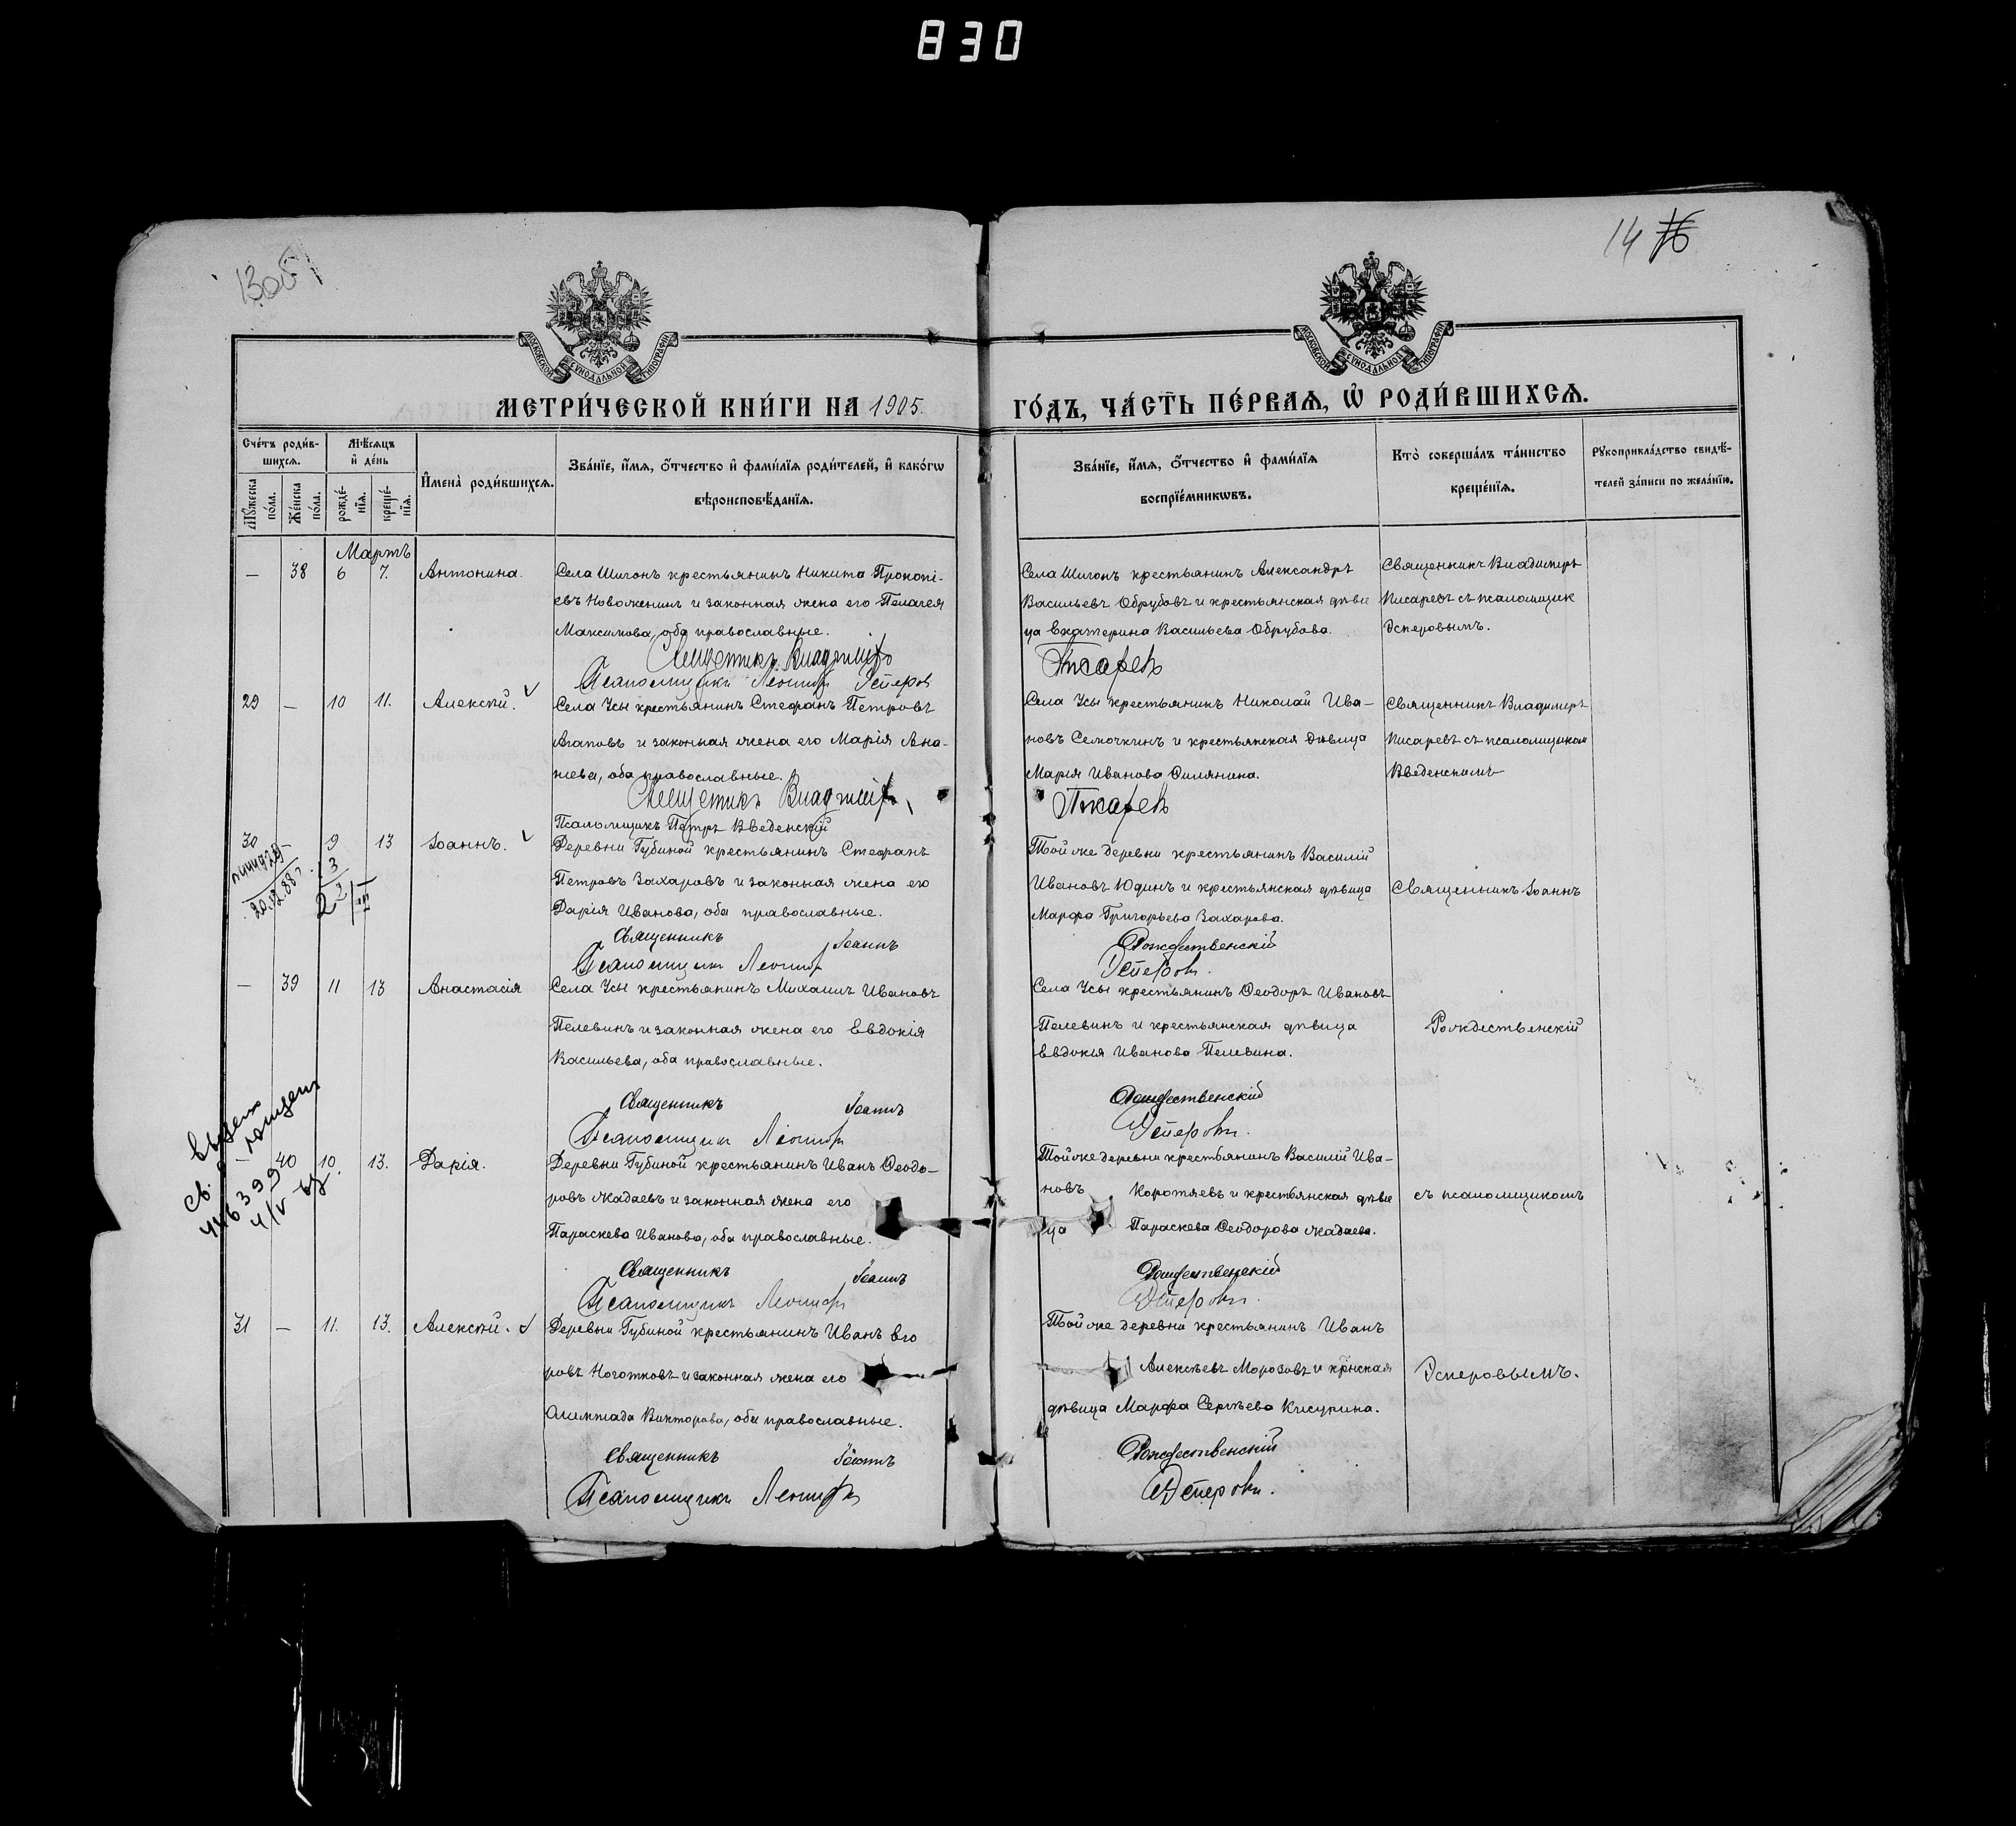 830
14 76
МОСКОВСКОЙ СѴНОДАЛЬНОЙ ТИПОГРАФІИ
МОСКОВСКОЙ СѴНОДАЛЬНОЙ ТИПОГРАФІИ
МЕТРИ́ЧЕСКОЙ КНИ́ГИ НА 1905.
ГО́ДЪ, ЧА́СТЬ ПЕ́РВАѦ, Ѿ РОДИ́ВШИХСѦ.
Сче́тъ роди́в-
шихсѧ.
Мꙋ́жеска по́ла.
Же́нска по́ла.
Мѣ́сѧцъ
и҆ де́нь
рожде́-
нїѧ.
креще́-
нїѧ.
И҆мена̀ роди́вшихсѧ.
Зва́нїе, и҆́мѧ, ѻ҆́тчество и҆ фами́лїѧ роди́телей, и҆ како́гѡ
вѣроисповѣ́данїѧ.
Зва́нїе, и҆́мѧ, ѻ҆́тчество и҆ фами́лїѧ
воспрїе́мникѡвъ.
Кто̀ соверша́лъ та́инство
креще́нїѧ.
Рꙋкоприкла́дство свидѣ́-
телей за́писи по жела́нїю.
Мартъ
— 38 6 7. Антонина.
Села Шигонъ крестьянинъ Никита Прокопі-
евъ Новоженинъ и законная жена его Пелагея
Максимова, оба православные.
Священникъ Владиміръ
Псаломщикъ Леонидъ Эсперов
Села Шигонъ крестьянинъ Александръ
Васильевъ Обрубовъ и крестьянская дѣви
ца Екатерина Васильева Обрубова.
Писаревъ
Священникъ Владимиръ
Писаревъ съ псаломщик
Эсперовымъ.
29 — 10 11. Алексѣй.
Села Усы крестьянинъ Стефанъ Петровъ
Агаповъ и законная жена его Марія Ана-
ніева, оба православные.
Священникъ Владиміръ
Псаломщикъ Петръ Введенскій
Села Усы крестьянинъ Николай Ива-
новъ Семочкинъ и крестьянская дѣвица
Марія Иванова Силянина.
Писаревъ
Священникъ Владимиръ
Писаревъ съ псаломщиком
Введенскимъ
30 — 9 13 Іоаннъ.
Деревни Губиной крестьянинъ Стефанъ
Петровъ Захаровъ и законная жена его
Дарія Иванова, оба православные.
Священникъ Іоаннъ
Псаломщикъ Леонидъ
Той же деревни крестьянинъ Василій
Ивановъ Юдинъ и крестьянская дѣвица
Марфа Григорьева Захарова.
Рождественскій
Эсперовъ.
Священникъ Іоаннъ
— 39 11 13 Анастасія
Села Усы крестьянинъ Михаилъ Ивановъ
Пелевинъ и законная жена его Евдокія
Васильева, оба православные.
Священникъ Іоаннъ
Псаломщикъ Леонидъ
Села Усы крестьянинъ Ѳеодоръ Ивановъ
Пелевинъ и крестьянская дѣвица
Евдокія Иванова Пелевина.
Рождественскій
Эсперовъ.
Рождественскій
40 10. 13. Дарія.
Деревни Губиной крестьянинъ Иванъ Ѳеодо-
ровъ Жадаевъ и законная жена его
Параскева Иванова, оба православные.
Священникъ Іоаннъ
Псаломщикъ Леонидъ
Той же деревни крестьянинъ Василій Ива-
новъ Коротяевъ и крестьянская дѣви
ца Параскева Ѳеодорова Жадаева.
Рождественскій
Эсперовъ.
съ псаломщикомъ
31 — 11. 13. Алексѣй.
Деревни Губиной крестьянинъ Иванъ Его
ровъ Ноготковъ и законная жена его
Олимпіада Викторова, оба православные.
Священникъ Іоаннъ
Псаломщикъ Леонидъ
Той же деревни крестьянинъ Иванъ
Алексѣевъ Морозовъ и крнская
дѣвица Марфа Сергѣева Кисурина.
Рождественскій
Эсперовъ.
Эсперовымъ.